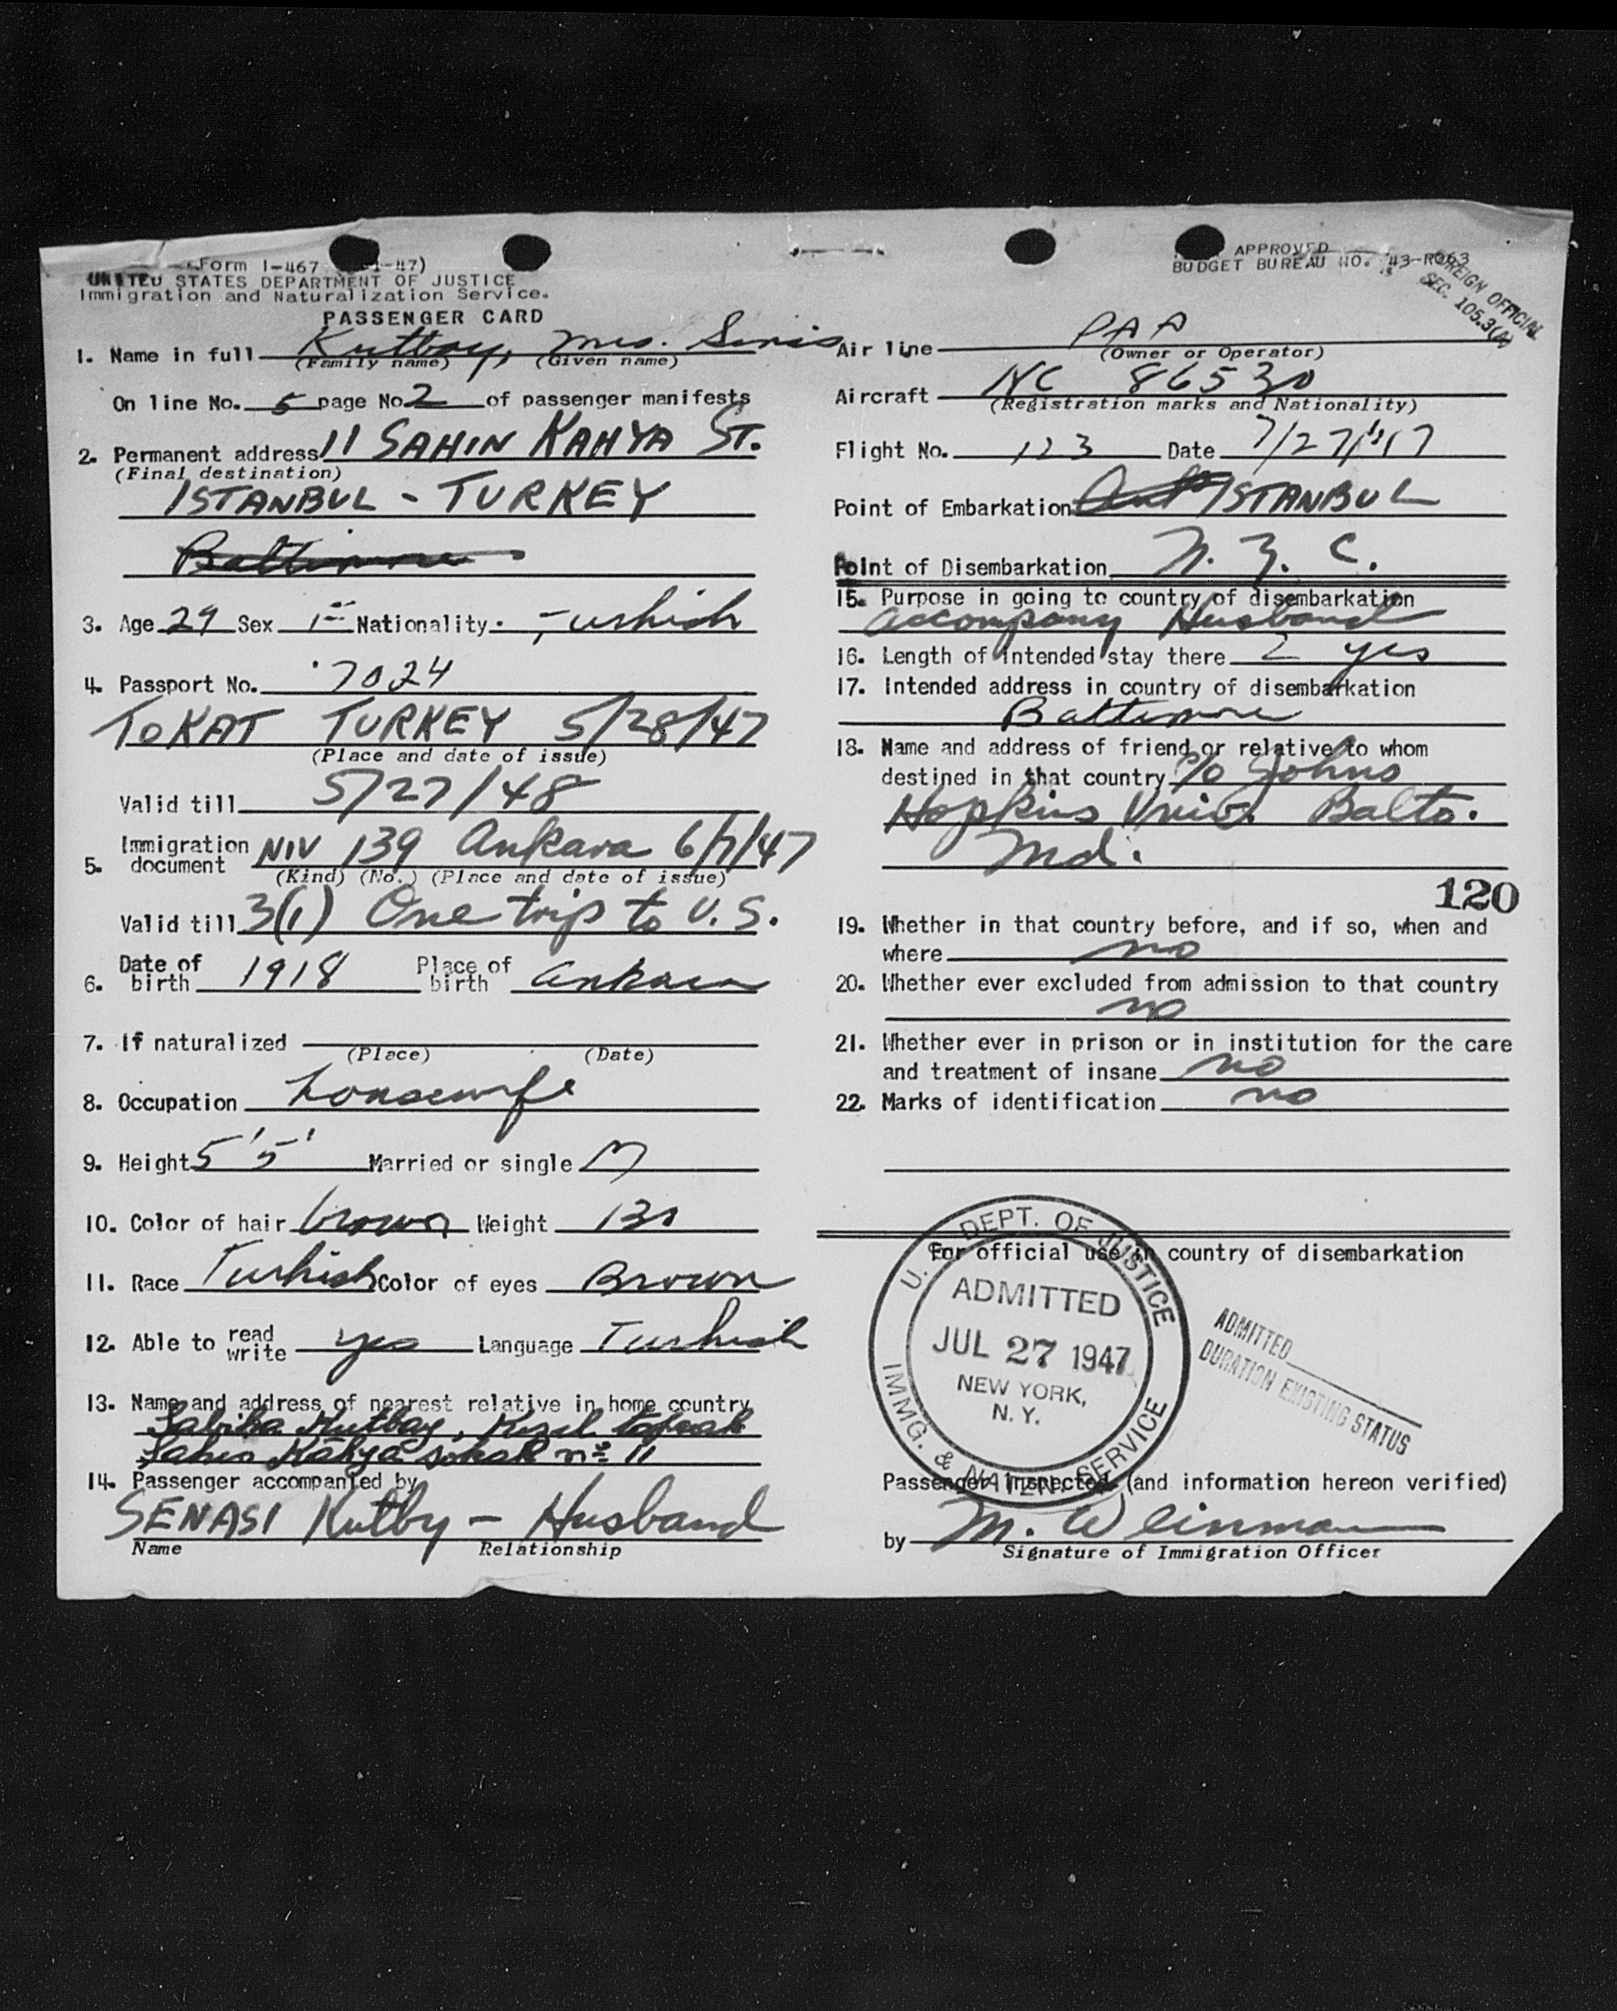 Form I-467
UNITED STATES DEPARTMENT OF JUSTICE
Immigration and Naturalization Service.
PASSENGER CARD
APPROVED
BUDGET BUREAU NO. 43-R063
FOREIGN OFFICIAL
SEC. 105.3(A)
1. Name in full Kutbay, Mrs.
(Family name) (Given name)
On line No. 5 page No 2 of passenger manifests
2. Permanent address 11 SAHIN KAHYA ST.
(Final destination)
ISTANBUL - TURKEY
Baltimore
3. Age 29 Sex F Nationality. Turkish
4. Passport No. 7024
TOKAT TURKEY 5/28/47
(Place and date of issue)
Valid till 5/27/48
5. Immigration document NIV 139 Ankara 6/7/47
(Kind) (No.) (Place and date of issue)
Valid till 3(1) One trip to U.S.
6. Date of birth 1918 Place of birth Ankara
7. If naturalized
(Place) (Date)
8. Occupation housewife
9. Height 5'5' Married or single M
10. Color of hair brown Weight 130
11. Race Turkish Color of eyes Brown
12. Able to read write yes Language Turkish
13. Name and address of nearest relative in home country
Sabiha Kutbay, Kızıl toprak
Sahin Kâhya sokak nº 11
14. Passenger accompanied by
SENASI Kutby - Husband
Name Relationship
Air line PAA
(Owner or Operator)
Aircraft NC 86530
(Registration marks and Nationality)
Flight No. 123 Date 7/27/47
Point of Embarkation ISTANBUL
Point of Disembarkation N.Y.C.
15. Purpose in going to country of disembarkation
accompany Husband
16. Length of intended stay there 2 yrs
17. Intended address in country of disembarkation
Baltimore
18. Name and address of friend or relative to whom
destined in that country c/o Johns
Hopkins Univ. Balto.
Md.
120
19. Whether in that country before, and if so, when and
where no
20. Whether ever excluded from admission to that country
no
21. Whether ever in prison or in institution for the care
and treatment of insane no
22. Marks of identification no
For official use in country of disembarkation
U. S. DEPT. OF JUSTICE
ADMITTED
JUL 27 1947
NEW YORK,
N. Y.
IMMG. & NATZN. SERVICE
ADMITTED
DURATION EXISTING STATUS
Passenger inspected (and information hereon verified)
by M. Weinman
Signature of Immigration Officer